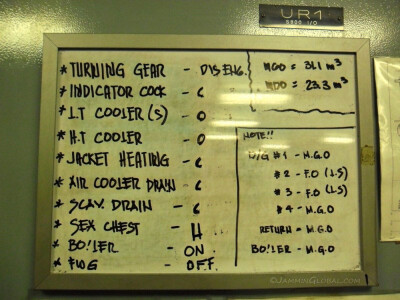 UR1
5200 I/O
* TURNING GEAR - DISENG.
* INDICATOR COCK - C
* L.T COOLER (S) - O
* H.T COOLER - O
* JACKET HEATING - C
* AIR COOLER DRAIN - C
* SCAV. DRAIN - C
* SEX CHEST - H
* BOILER - ON
* FWG - OFF
MGO = 311 m³
MDO = 23.3 m³
NOTE!!
D/G #1 - M.G.O
#2 - F.O (LS)
#3 - F.O (LS)
#4 - M.G.O
RETURN - M.G.O
BOILER - M.G.O
©JAMMINGLOBAL.COM